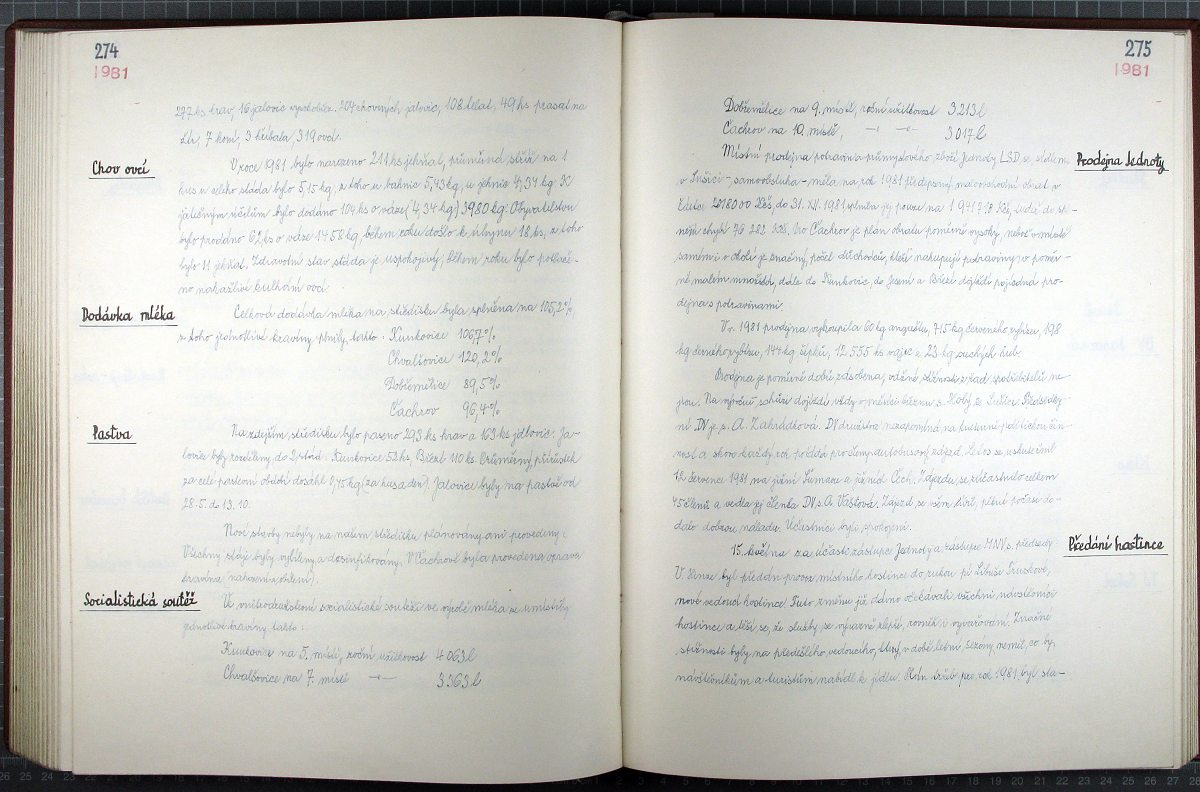 274
1981
297 ks krav, 16 jalovic vysokobřez. 204 chovných jalovic, 108 telat, 49 ks prasat na
žír, 7 koní, 3 hříbata, 319 ovcí.
Chov ovcí
V roce 1981 bylo narozeno 211 ks jehňat, průměrná stříž na 1
kus u celého stáda bylo 5,15 kg, z toho u bahnic 5,43 kg, u jehnic 4,34 kg. K
jatečným účelům bylo dodáno 104 ks o váze (4,34 kg) 3980 kg. Obyvatelstvu
bylo prodáno 62 ks o váze 1458 kg, během roku došlo k úhynu 18 ks, z toho
bylo 11 jehňat. Zdravotní stav stáda je uspokojivý, během roku bylo potlače-
no nakažlivé kulhání ovcí.
Dodávka mléka
Celková dodávka mléka na středisku byla splněna na 105,2%
z toho jednotlivé kravíny plnily takto: Kunkovice 106,7%
Chvalšovice 120,2%
Dobřemilice 89,5%
Čachrov 96,4%
Pastva
Na zdejším středisku bylo paseno 293 ks krav a 163 ks jalovic. Ja-
lovice byly rozděleny do 2 stád: Kunkovice 52 ks, Březí 110 ks. Průměrný přírůstek
za celé pastevní období dosáhl 0,45 kg (za kus a den). Jalovice byly na pastvě od
28.5. do 13.10.
Nové stavby nebyly na našem středisku plánovány ani provedeny.
Všechny stáje byly vybíleny a desinfikovány. V Čachrově byla provedena oprava
kravína
Socialistická soutěž
V vnitrodružstevní socialistické soutěži ve výrobě mléka se umístily
jednotlivé kravíny takto:
Kunkovice na 5. místě, roční užitkovost 4063 l
Chvalšovice na 7. místě —"— 3363 l
275
1981
Dobřemilice na 9. místě, roční užitkovost 3213 l
Čachrov na 10. místě, —"— —"— 3017 l
Prodejna Jednoty
Místní prodejna potravin a průmyslového zboží Jednoty LSD se sídlem
v Sušici - samoobsluha - měla na rok 1981 předepsaný maloobchodní obrat v
částce 2018000 Kčs, do 31. XII. 1981 splnila jej pouze na Kčs, tudíž do sk-
chybí 76 282 Kčs. Pro Čachrov je plán obratu poměrně vysoký, neboť v místě
samém i v okolí je značný počet důchodců, kteří nakupují potraviny v poměr-
ně malém množství, dále do Kunkovic, do Jesení a Březí dojíždí pojízdná pro-
dejna s potravinami.
V r. 1981 prodejna vykoupila 60 kg angreštu, 715 kg červeného rybízu, 198
kg černého rybízu, 144 kg šípků, 12.555 ks vajec a 23 kg suchých hub.
Prodejna je poměrně dobře zásobena, vážné stížnosti z řad spotřebitelů ne-
jsou. Na výroční schůzi dojíždí vždy v měsíci březnu s. Holý ze Sušice. Předsedky-
ní DV je s. A. Zahrádková. DV družstva nezapomíná na kulturně politickou čin-
nost a skoro každý rok pořádá pro členy autobusový zájezd. Letos se uskutečnil
12. července 1981 na jižní Šumavu a do již. Čech. Zájezdu se zúčastnilo celkem
45 členů a vedla jej členka DV s. A. Vastová. Zájezd se všem líbil, pěkné počasí do-
dalo dobrou náladu. Účastníci byli spokojeni.
Předání hostince
15. května za účasti zástupce Jednoty a zástupce MNV s. předsedy
V. byl předán provoz místního hostince do rukou pí Libuši
nové vedoucí hostince. Tuto změnu již dávno očekávali všichni návštěvníci
hostince a těší se, že služby se výrazně zlepší, rovněž i vyvařování. Značné
stížnosti byly na předešlého vedoucího, který v době letní sezóny neměl, co by
návštěvníkům a turistům nabídl k jídlu. Plán tržeb pro rok 1981 byl sta-